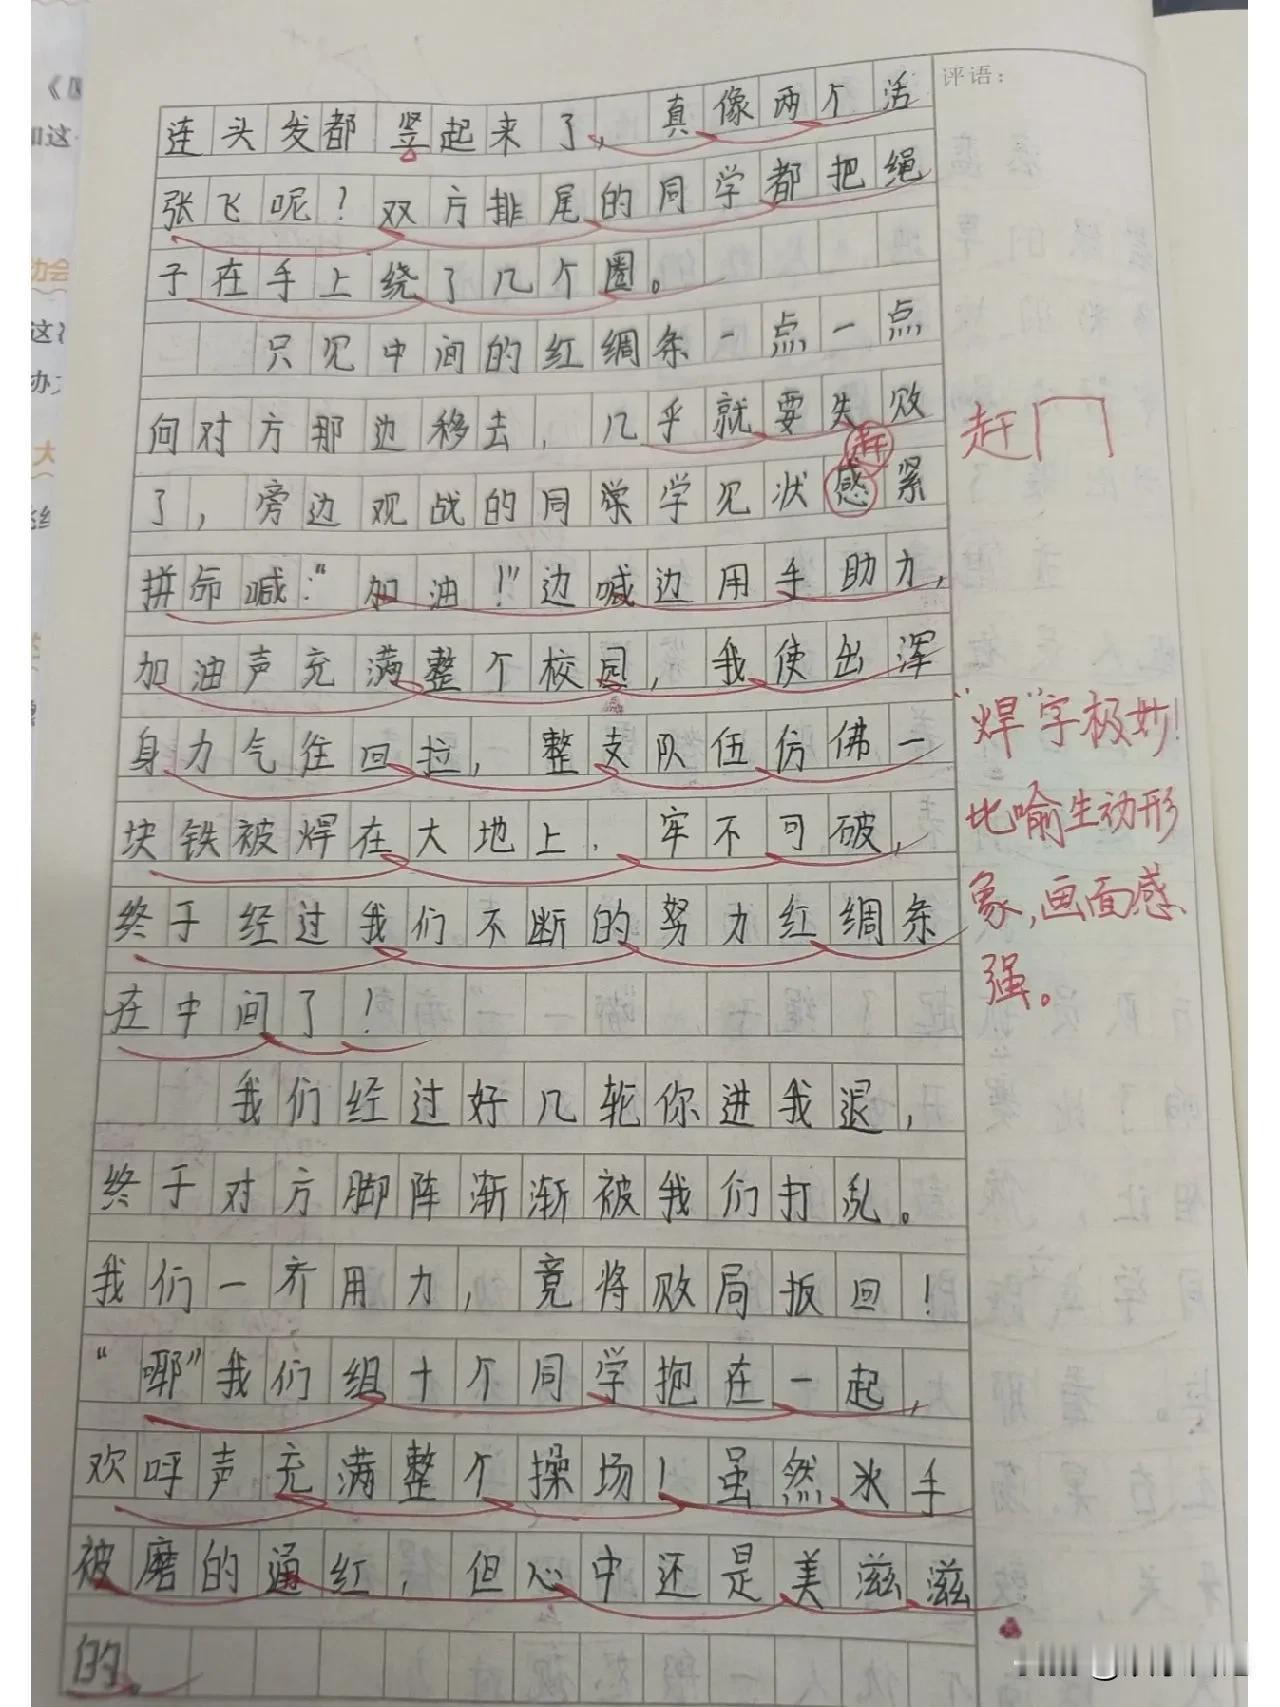 评语：
连头发都竖起来了，真像两个活
张飞呢？双方排尾的同学都把绳
子在手上绕了几个圈。
只见中间的红绸条一点一点
向对方那边移去，几乎就要失败
赶
了，旁边观战的同学学见状感紧
赶
拼命喊：“加油！”边喊边用手助力，
加油声充满整个校园，我使出浑
身力气往回拉，整支队伍仿佛一
块铁被焊在大地上，牢不可破，
终于经过我们不断的努力红绸条
在中间了！
“焊”字极妙！
比喻生动形
象，画面感
强。
我们经过好几轮你进我退，
终于对方脚阵渐渐被我们打乱。
我们一齐用力，竟将败局扳回！
“耶”我们组十个同学抱在一起，
欢呼声充满整个操场！虽然冰手
被磨的通红，但心中还是美滋滋
的。